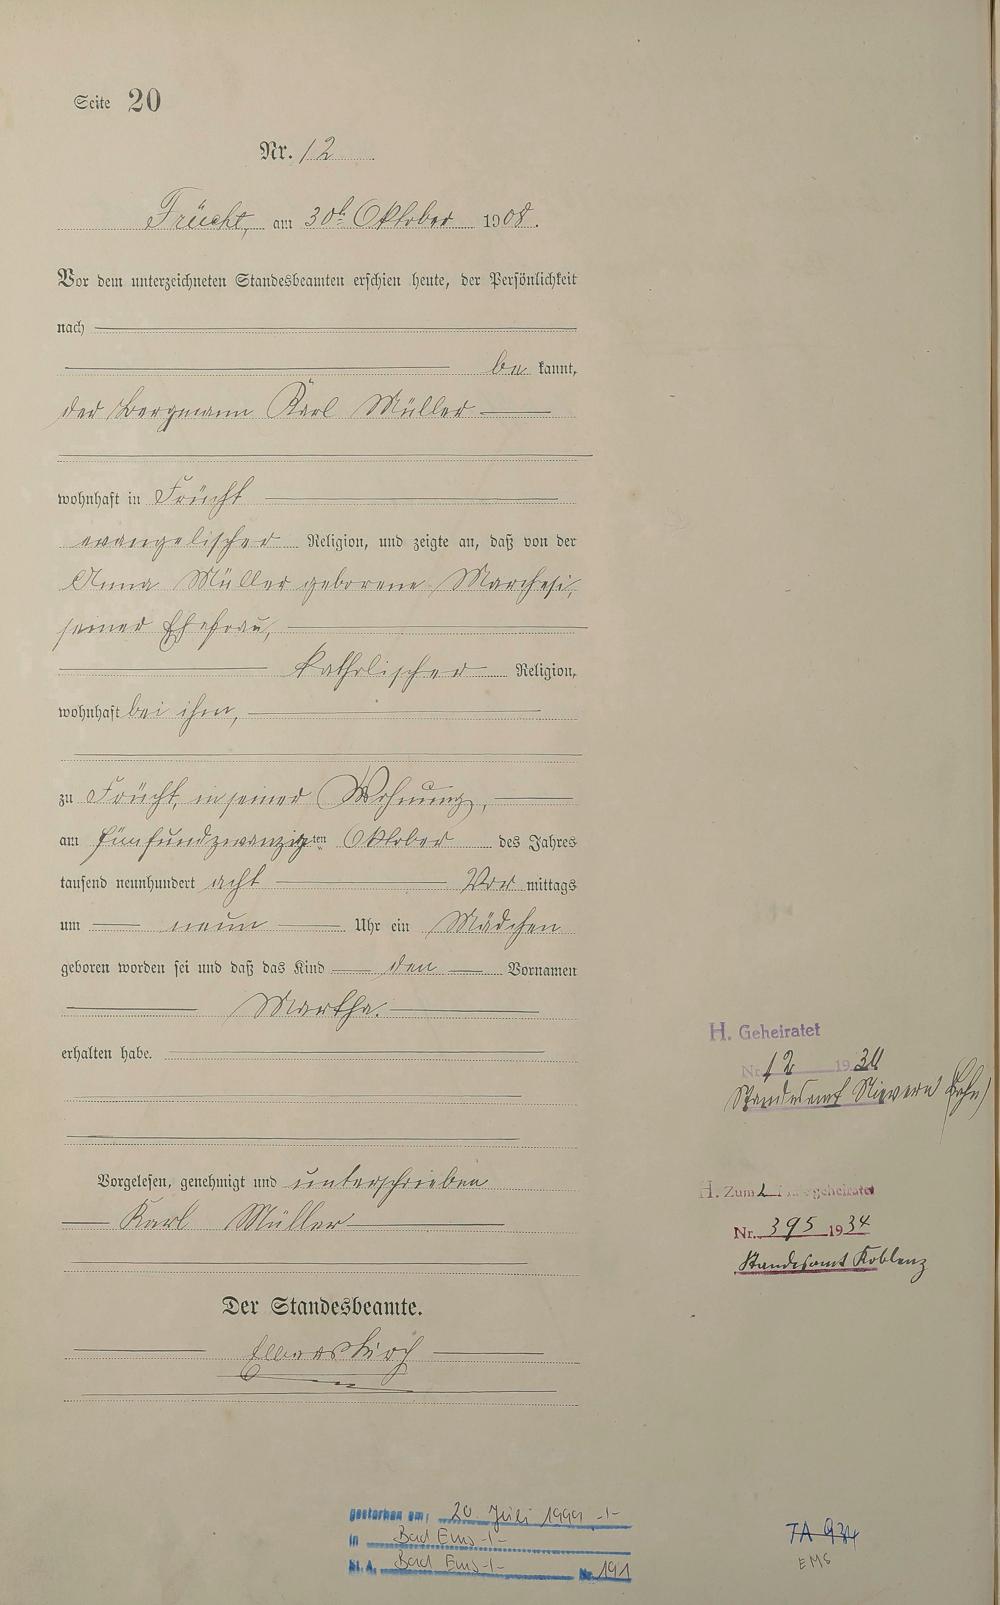 Seite 20
Nr. 12
Frücht, am 30t Oktober 1908.
Vor dem unterzeichneten Standesbeamten erschien heute, der Persönlichkeit
nach
be kannt,
der Bergmann Karl Müller
wohnhaft in Frücht
evangelischer Religion, und zeigte an, daß von der
Anna Müller geborene Marchesi,
seiner Ehefrau,
katholischer Religion,
wohnhaft bei ihm,
zu Frücht, in seiner Wohnung,
am fünfundzwanzigten Oktober des Jahres
tausend neunhundert acht Vor mittags
um neun Uhr ein Mädchen
geboren worden sei und daß das Kind den Vornamen
Martha.
erhalten habe.
Vorgelesen, genehmigt und unterschrieben
Karl Müller
Der Standesbeamte.
H. Geheiratet
Nr. 12 19
Standesamt Nievern
H. Zum 2. geheiratet
Nr. 395 1934
Standesamt Koblenz
gestorben am: 20. Juli 1999 -/-
in Bad Ems -/-
St. A. Bad Ems -/- Nr. 191
EMS